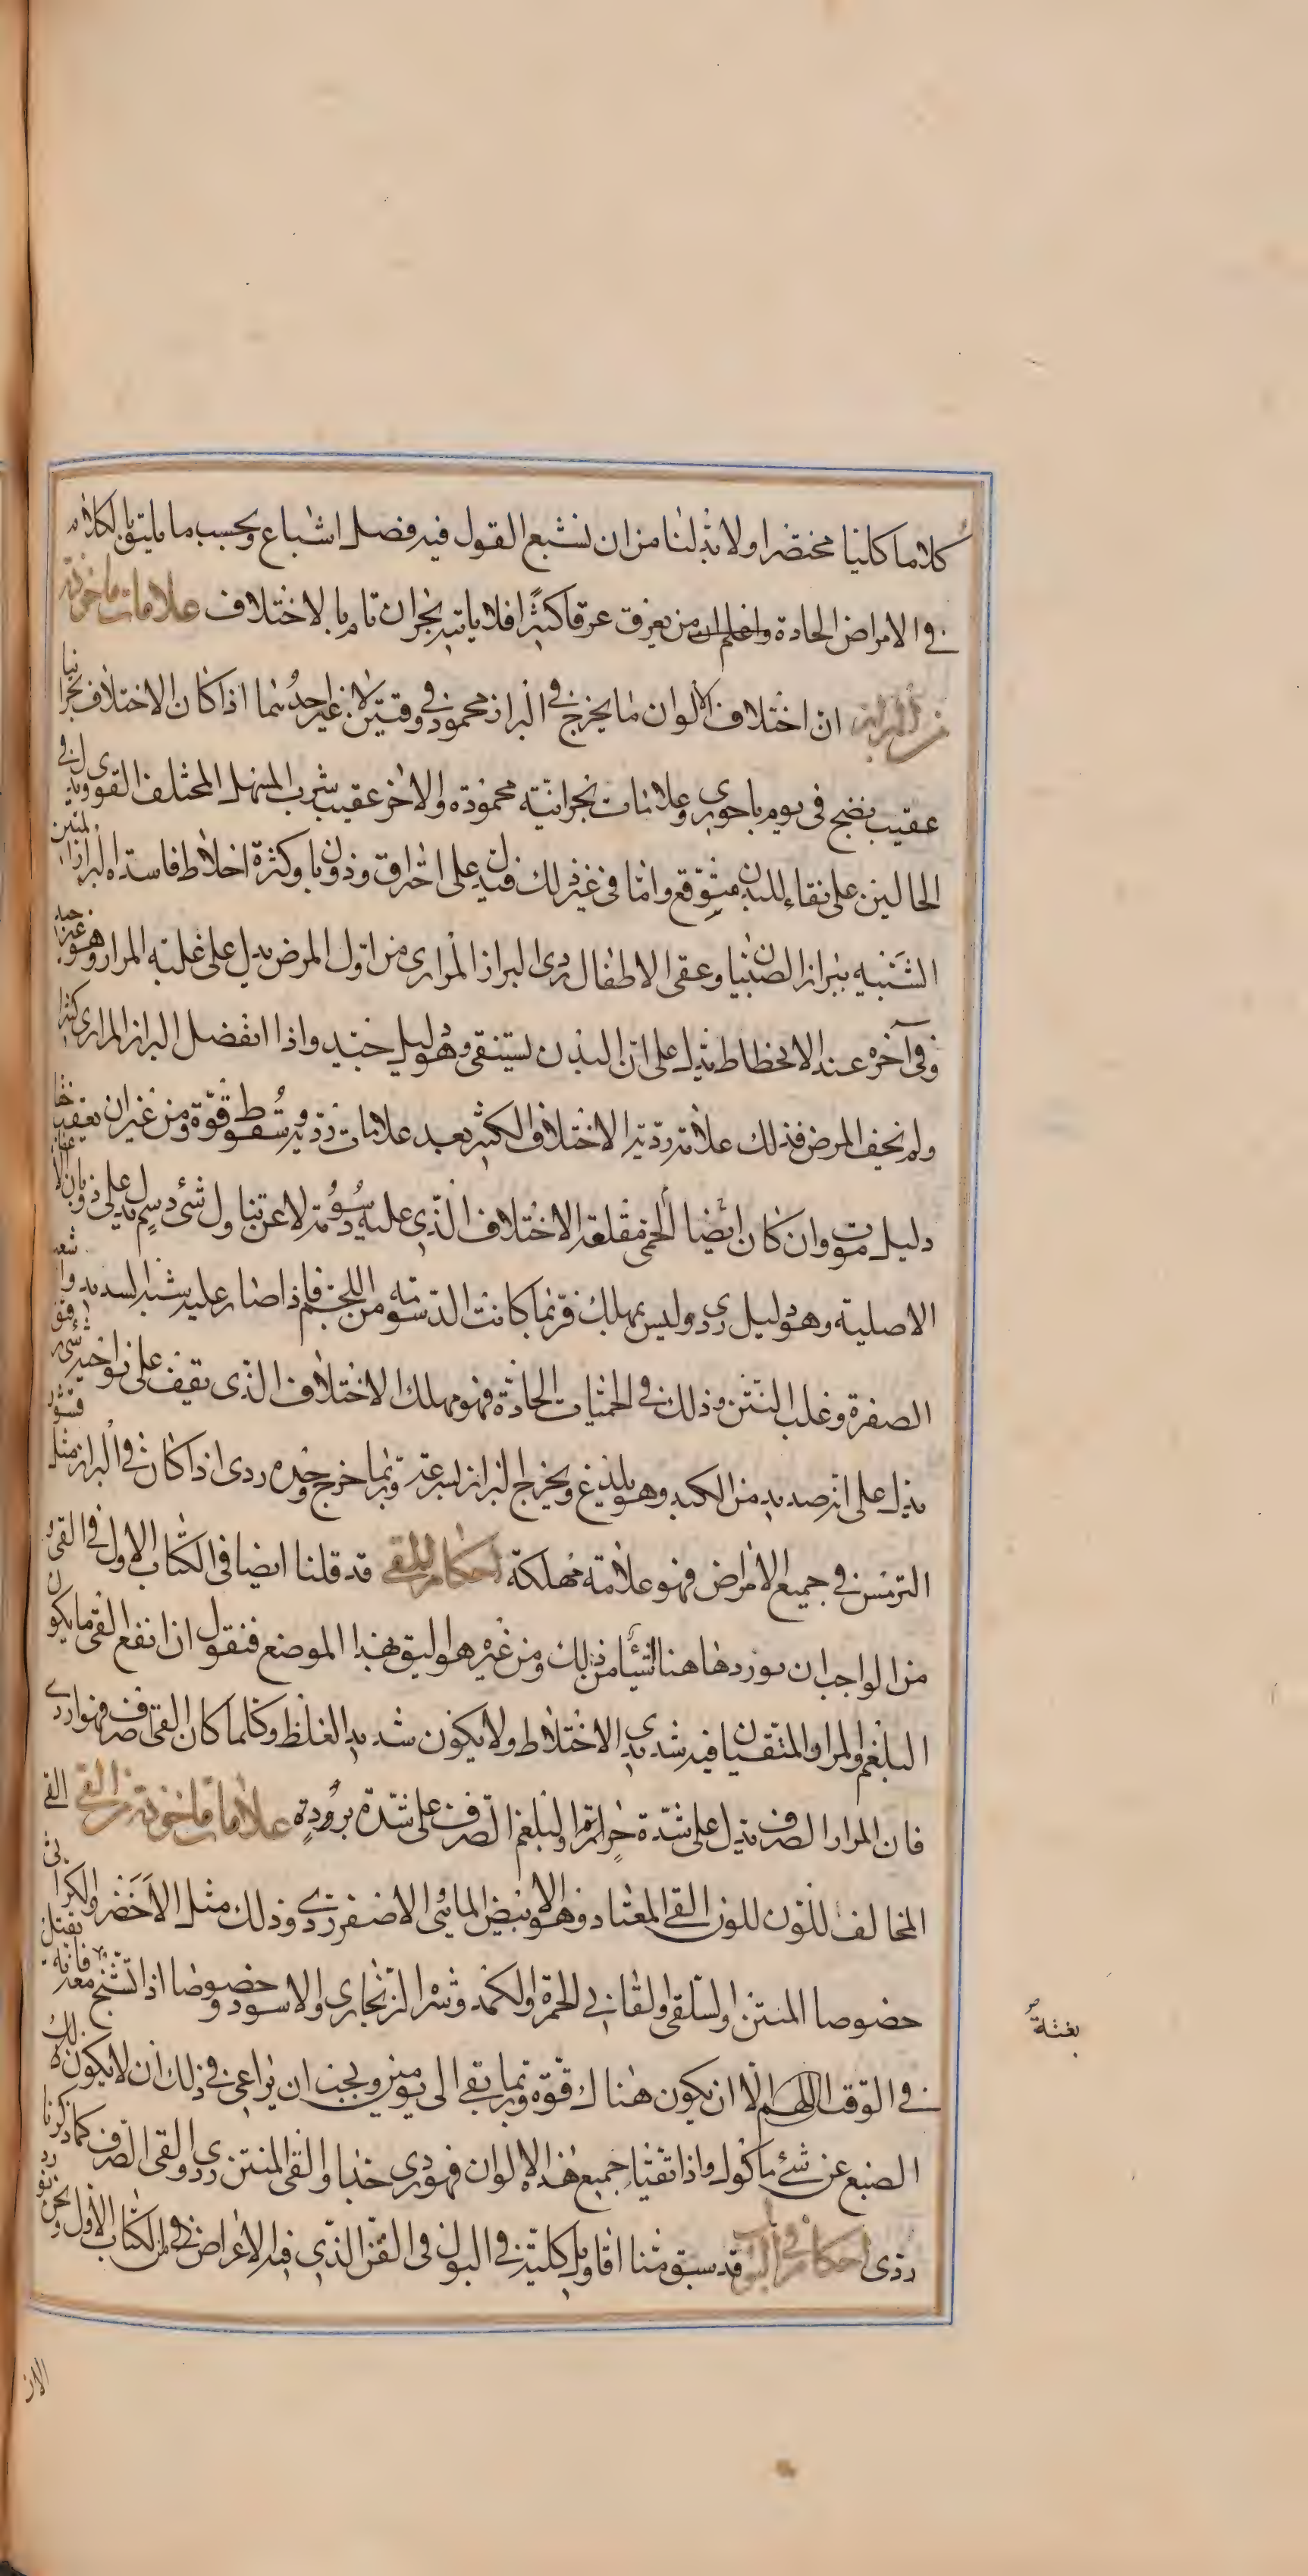 كلاما كليا مختصرا ولا بد لنا من ان نشبع القول فيه فضل اشباع وبحسب ما يليق بالكلام
في الامراض الحادة واعلم ان من يعرق عرقا كثيرا فلا ياتيه بحران تام بالاختلاف علامات ماخوذة
من البراز ان اختلاف الالوان مما يخرج في البراز محمود في وقتين لا في غير احدهما اذا كان الاختلاف بحرانيا
عقيب نضج في يوم باحوري وعلامات بحرانية محمودة والاخر عقيب شرب المسهل المختلف القوى ويدل في
الحالين على نقاء للبدن متوقع واما في غير ذلك فيدل على احتراق وذوبان وكثرة اخلاط فاسدة البراز المنتن
الشبيه ببراز الصبيان وعقى الاطفال ردى البراز المرارى من اول المرض يدل على غلبة المرار وهو غير جيد
وفي آخره عند الانحطاط يدل على ان البدن يستنقى وهو دليل جيد واذا انفصل البراز المرارى كثيرا
ولم يخف المرض فذلك علامة ردية الاختلاف الكثير بعد علامات ردية وسقوط قوة ومن غير ان يعقب خفا
دليل موت وان كان ايضا الحمى مقلعة الاختلاف الذي عليه دسومة لا عن تناول شئ دسم يدل على ذوبان الاعضاء
الاصلية وهو دليل ردى وليس بمهلك فربما كانت الدسومة من اللحم فاذا صار عليه شبه الصديد واشتد
الصفرة وغلب النتن وذلك في الحميات الحادة فهو مهلك الاختلاف الذى يقف على نواحيه شئ رقيق
يدل على انه صديد من الكبد وهو يلذع ويخرج البراز بسرعة وربما خرج وحده ردى اذا كان في البراز مثل قشور
الترمس في جميع الامراض فهو علامة مهلكة احكام القى قد قلنا ايضا في الكتاب الاول في القى و
من الواجب ان نورد هاهنا اشياء من ذلك ومن غيره هو اليق بهذا الموضع فنقول ان انفع القى ما يكون
البلغم والمرار المتقيان فيه شديدى الاختلاط ولا يكون شديد الغلظ وكلما كان القى اصرف فهو اردى
فان المرار الصرف يدل على شدة حرارة والبلغم الصرف على شدة برودة علامات ماخوذة من القى القى
المخالف اللون للون القى المعتاد وهو الابيض المائى الاصفر ردى وذلك مثل الاخضر والكراثى
خصوصا المنتن والسلقى والقانى الحمرة والكمد وشره الزنجارى والاسود وخصوصا اذا تشنج معه فانه يقتل
في الوقت اللهم الا ان يكون هناك قوة وربما بقى الى يومين ويجب ان يراعى في ذلك ان لا يكون ذلك
بغتة
الصبغ عن شئ ماكول واذا تقيأ جميع هذه الالوان فهو ردى جدا والقى المنتن ردى والقى الصرف كما ذكرنا
ردى احكام في البول قد سبق منا اقاويل كلية في البول في الفن الذي فيه الاعراض في الكتاب الاول ونحن نورد
الان